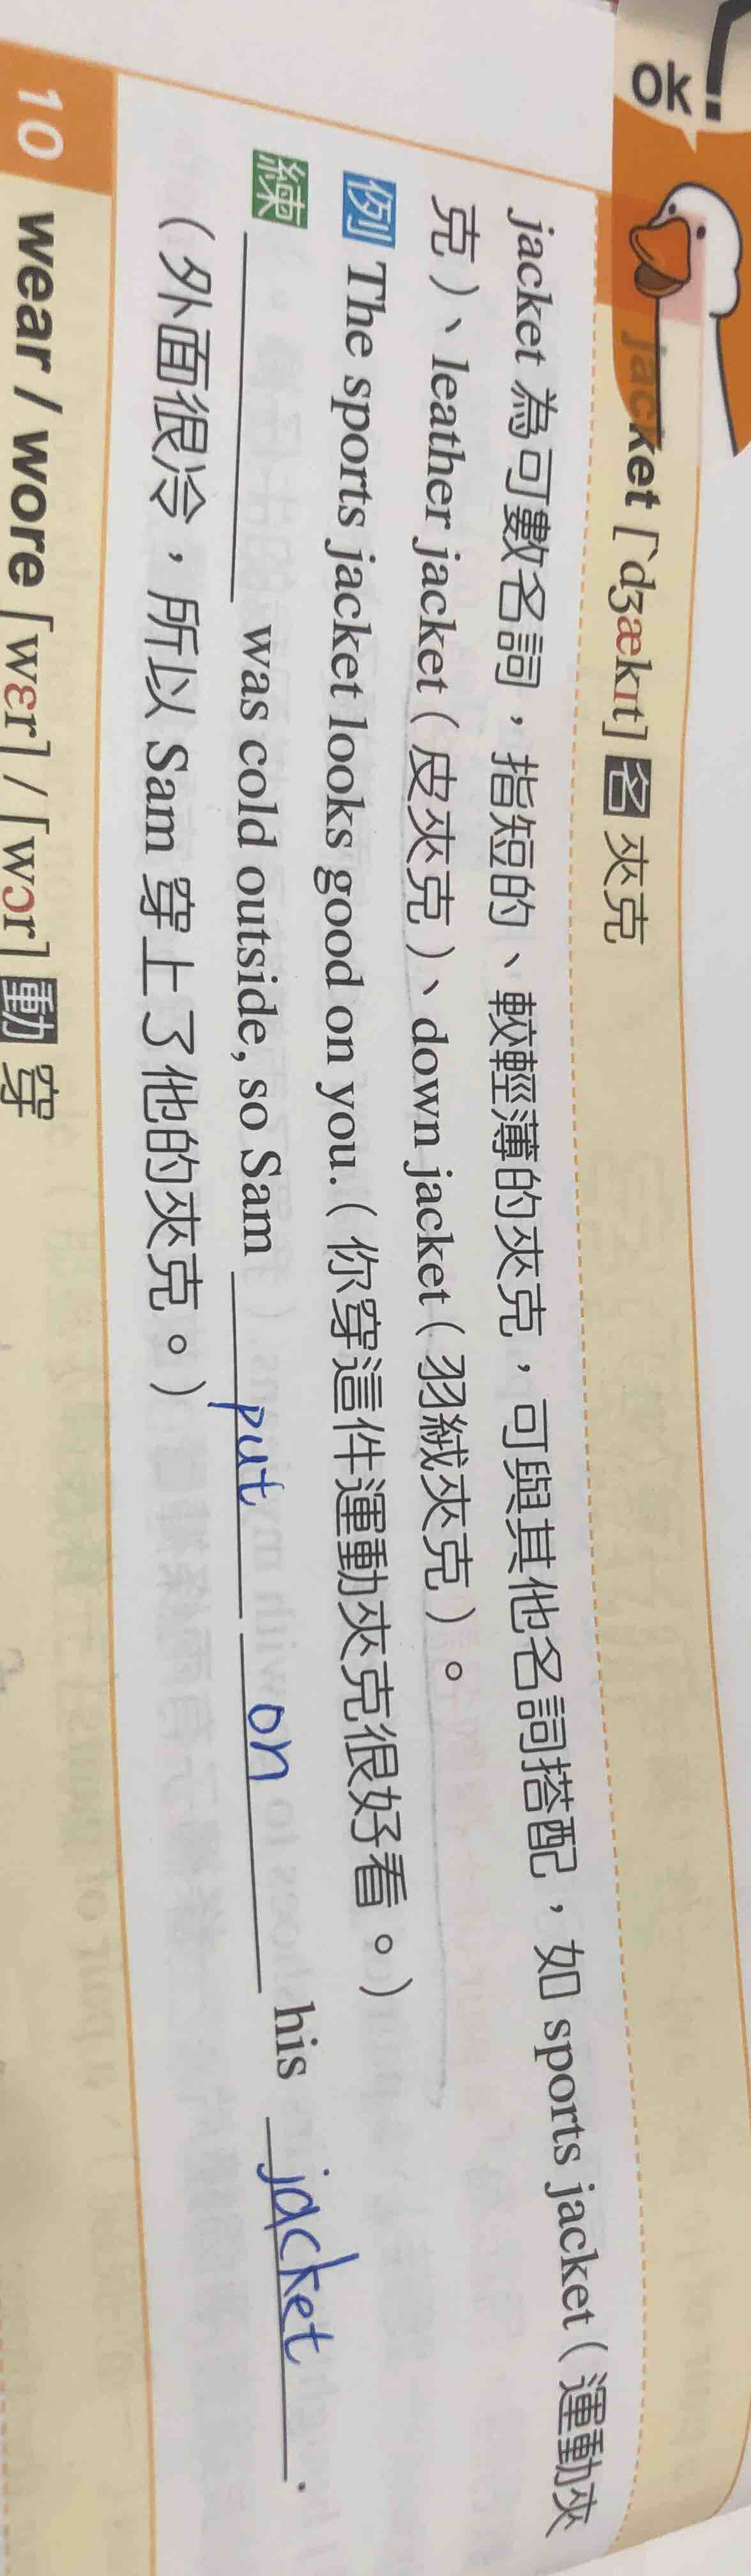 ok
jacket [ˋdʒækɪt] 名 夾克
jacket 為可數名詞，指短的、較輕薄的夾克，可與其他名詞搭配，如 sports jacket（運動夾
克）、leather jacket（皮夾克）、down jacket（羽絨夾克）。
例 The sports jacket looks good on you.（你穿這件運動夾克很好看。）
練 ________ was cold outside, so Sam put on his jacket.
（外面很冷，所以 Sam 穿上了他的夾克。）
10 wear / wore [wɛr] / [wɔr] 動 穿